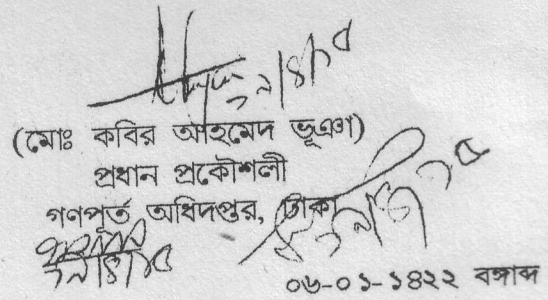 (মোঃ কবির আহমেদ ভূঞা)
প্রধান প্রকৌশলী
গণপূর্ত অধিদপ্তর, ঢাকা
০৬-০১-১৪২২ বঙ্গাব্দ